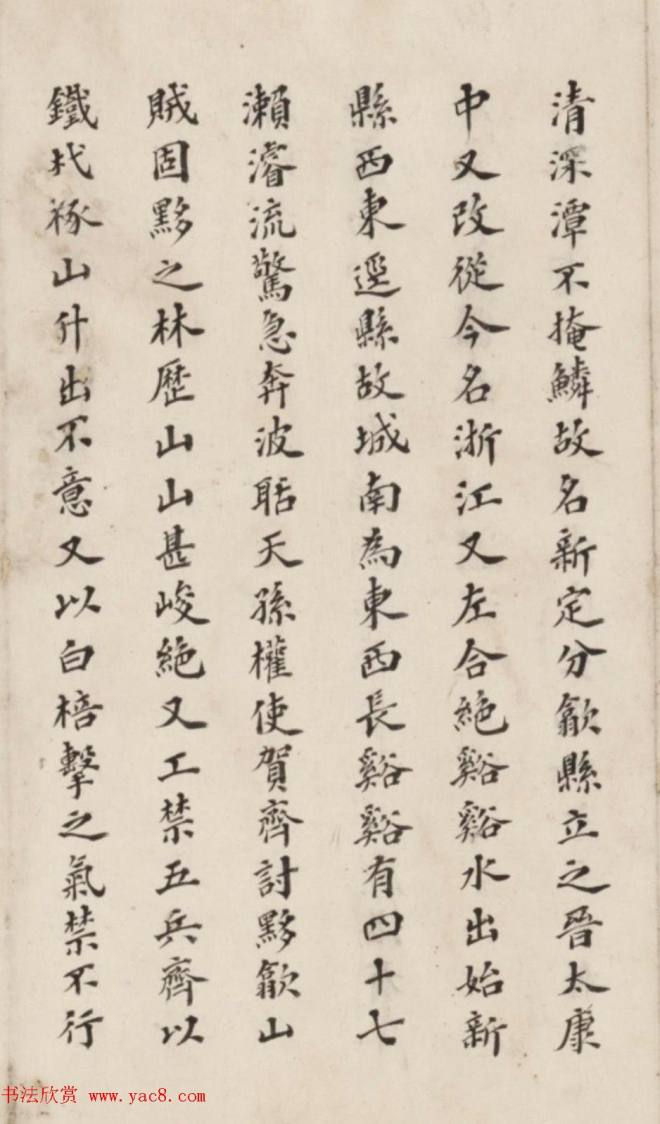 清深潭不掩鱗故名新定分歙縣立之晉太康
中又改從今名浙江又左合絶谿谿水出始新
縣西東逕縣故城南為東西長谿谿有四十七
瀨濬流驚急奔波聒天孫權使賀齊討黟歙山
賊固黟之林歷山山甚峻絶又工禁五兵齊以
鐵杙椓山什出不意又以白棓擊之氣禁不行
书法欣赏 www.yac8.com